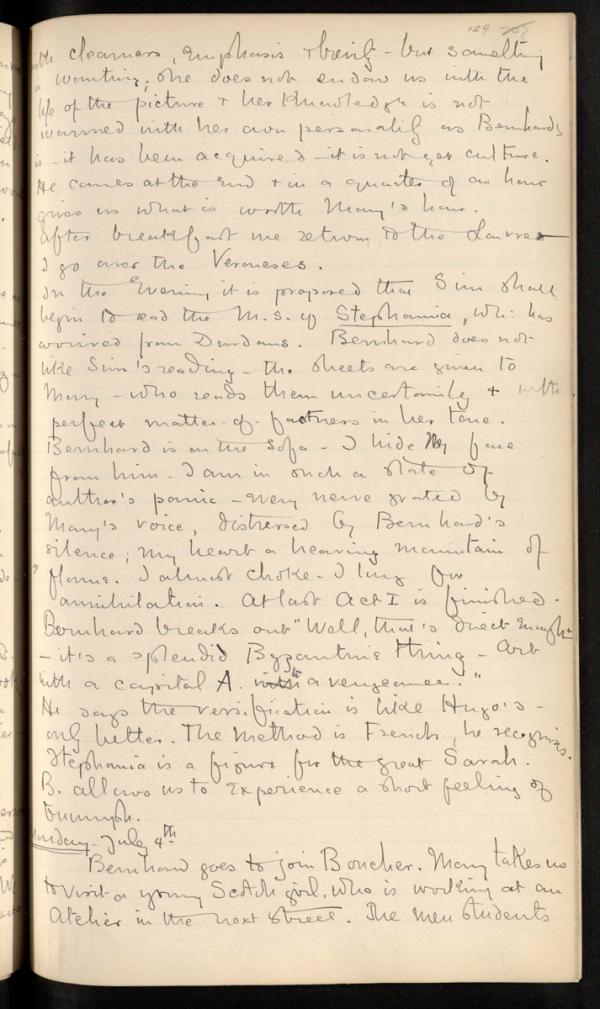 129
with clearness, emphasis & brevity - but something
is wanting; she does not endow us with the
life of the picture & her knowledge is not
warmed with her own personality as Bernhard's
is - it has been acquired - it is not yet culture.
He comes at the end & in a quarter of an hour
gives us what is worth Mary's hour.
After breakfast we return to the Louvre
I go over the Veroneses.
In the Evening it is proposed that Sim shall
begin to read the M.S. of Stephania, wh: has
arrived from Durdans. Bernhard does not
like Sim's reading - the sheets are given to
Mary - who reads them uncertainly & with
perfect matter-of-factness in her tone.
Bernhard is on the sofa - I hide my face
from him. I am in such a state of
author's panic - every nerve grated by
Mary's voice, distressed by Bernhard's
silence; my heart a heaving mountain of
flame. I almost choke - I long for
annihilation. At last Act I is finished.
Bernhard breaks out "Well, that's direct enough
- it's a splendid Byzantine thing - Art
with a capital A. with a vengeance."
He says the versification is like Hugo's -
only better. The method is French, he recognises.
Stephania is a figure for the great Sarah.
B. allows us to experience a short feeling of
triumph.
Monday - July 4th
Bernhard goes to join Boucher. Mary takes us
to visit a young Scotch girl, who is working at an
Atelier in the next street. The men students